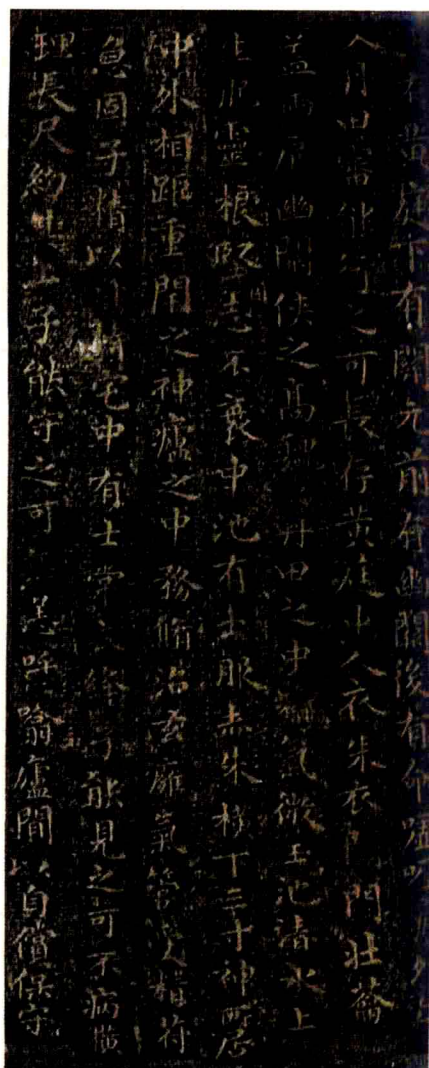 有黄庭下有關元前有幽闕後有命噓吸
入丹田審能行之可長存黄庭中人衣朱衣門壯蘥
蓋兩扉幽闕俠之高巍丹田之中精氣微玉池清水上
生肥靈根堅志不衰中池有士服赤朱橫下三寸神所居
中外相距重閉之神廬之中務脩治玄癰氣管受精符
急固子精以自持宅中有士常衣絳子能見之可不病橫
理長尺約其上子能守之可無恙呼噏廬閒以自償保守